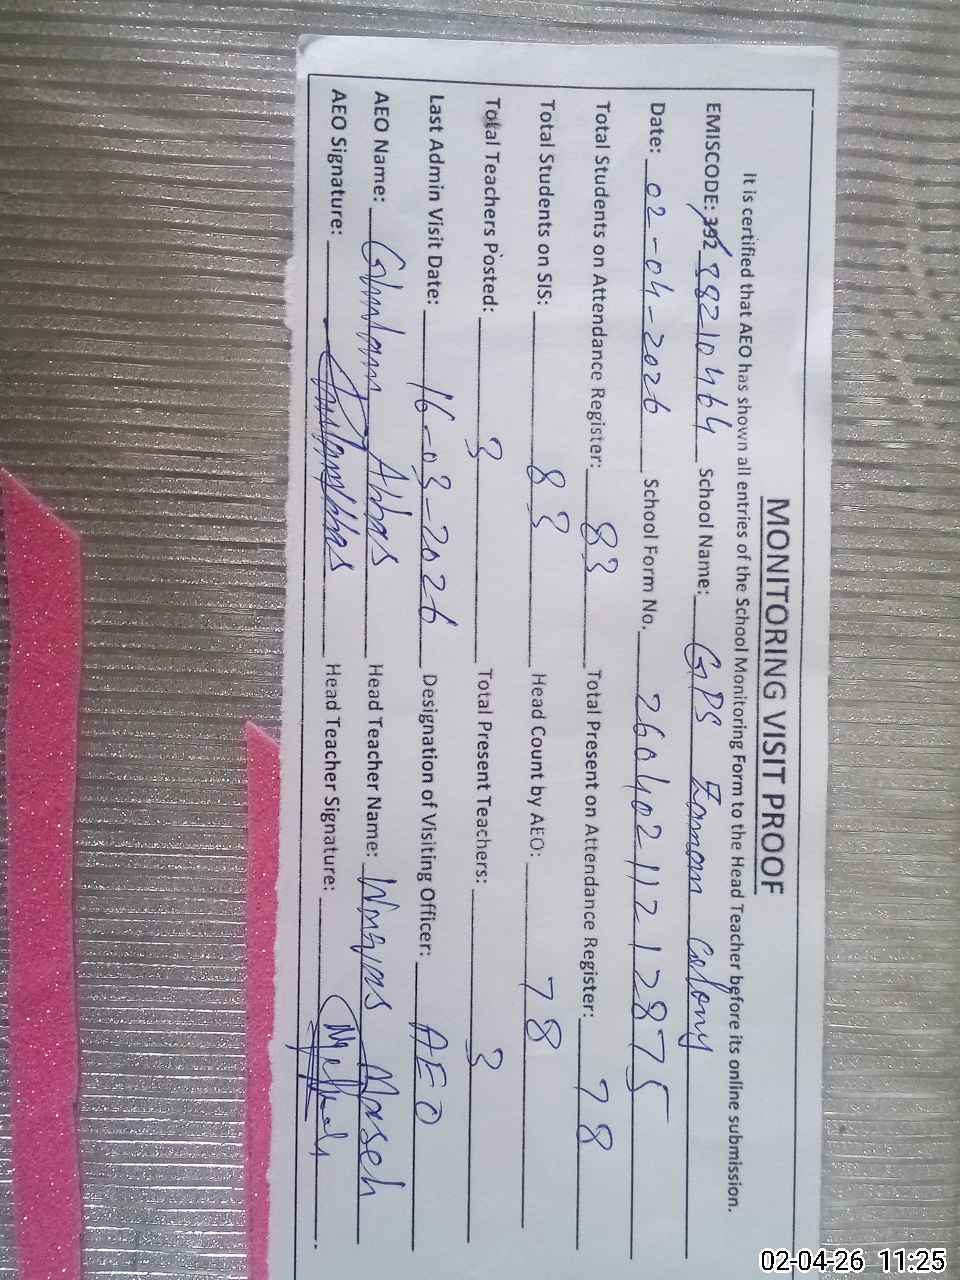 MONITORING VISIT PROOF
It is certified that AEO has shown all entries of the School Monitoring Form to the Head Teacher before its online submission.
EMISCODE: 392 38210464 School Name: GPS Zaman Colony
Date: 02-04-2026 School Form No. 26040211212875
Total Students on Attendance Register: 83 Total Present on Attendance Register: 78
Total Students on SIS: 83 Head Count by AEO: 78
Total Teachers Posted: 3 Total Present Teachers: 3
Last Admin Visit Date: 16-03-2026 Designation of Visiting Officer: AEO
AEO Name: Ghulam Abbas Head Teacher Name:
AEO Signature: Ghulam Abbas Head Teacher Signature:
02-04-26 11:25